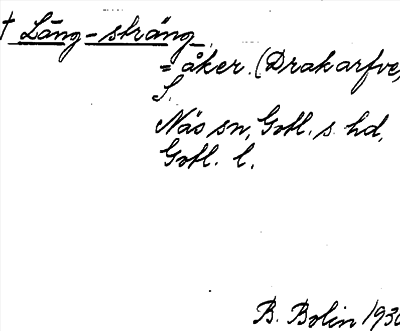 † Lång-sträng,
= åker. (Drakarfve,
S.
Näs sn, Gotl. s. hd,
Gotl. l.
B. Bolin 193